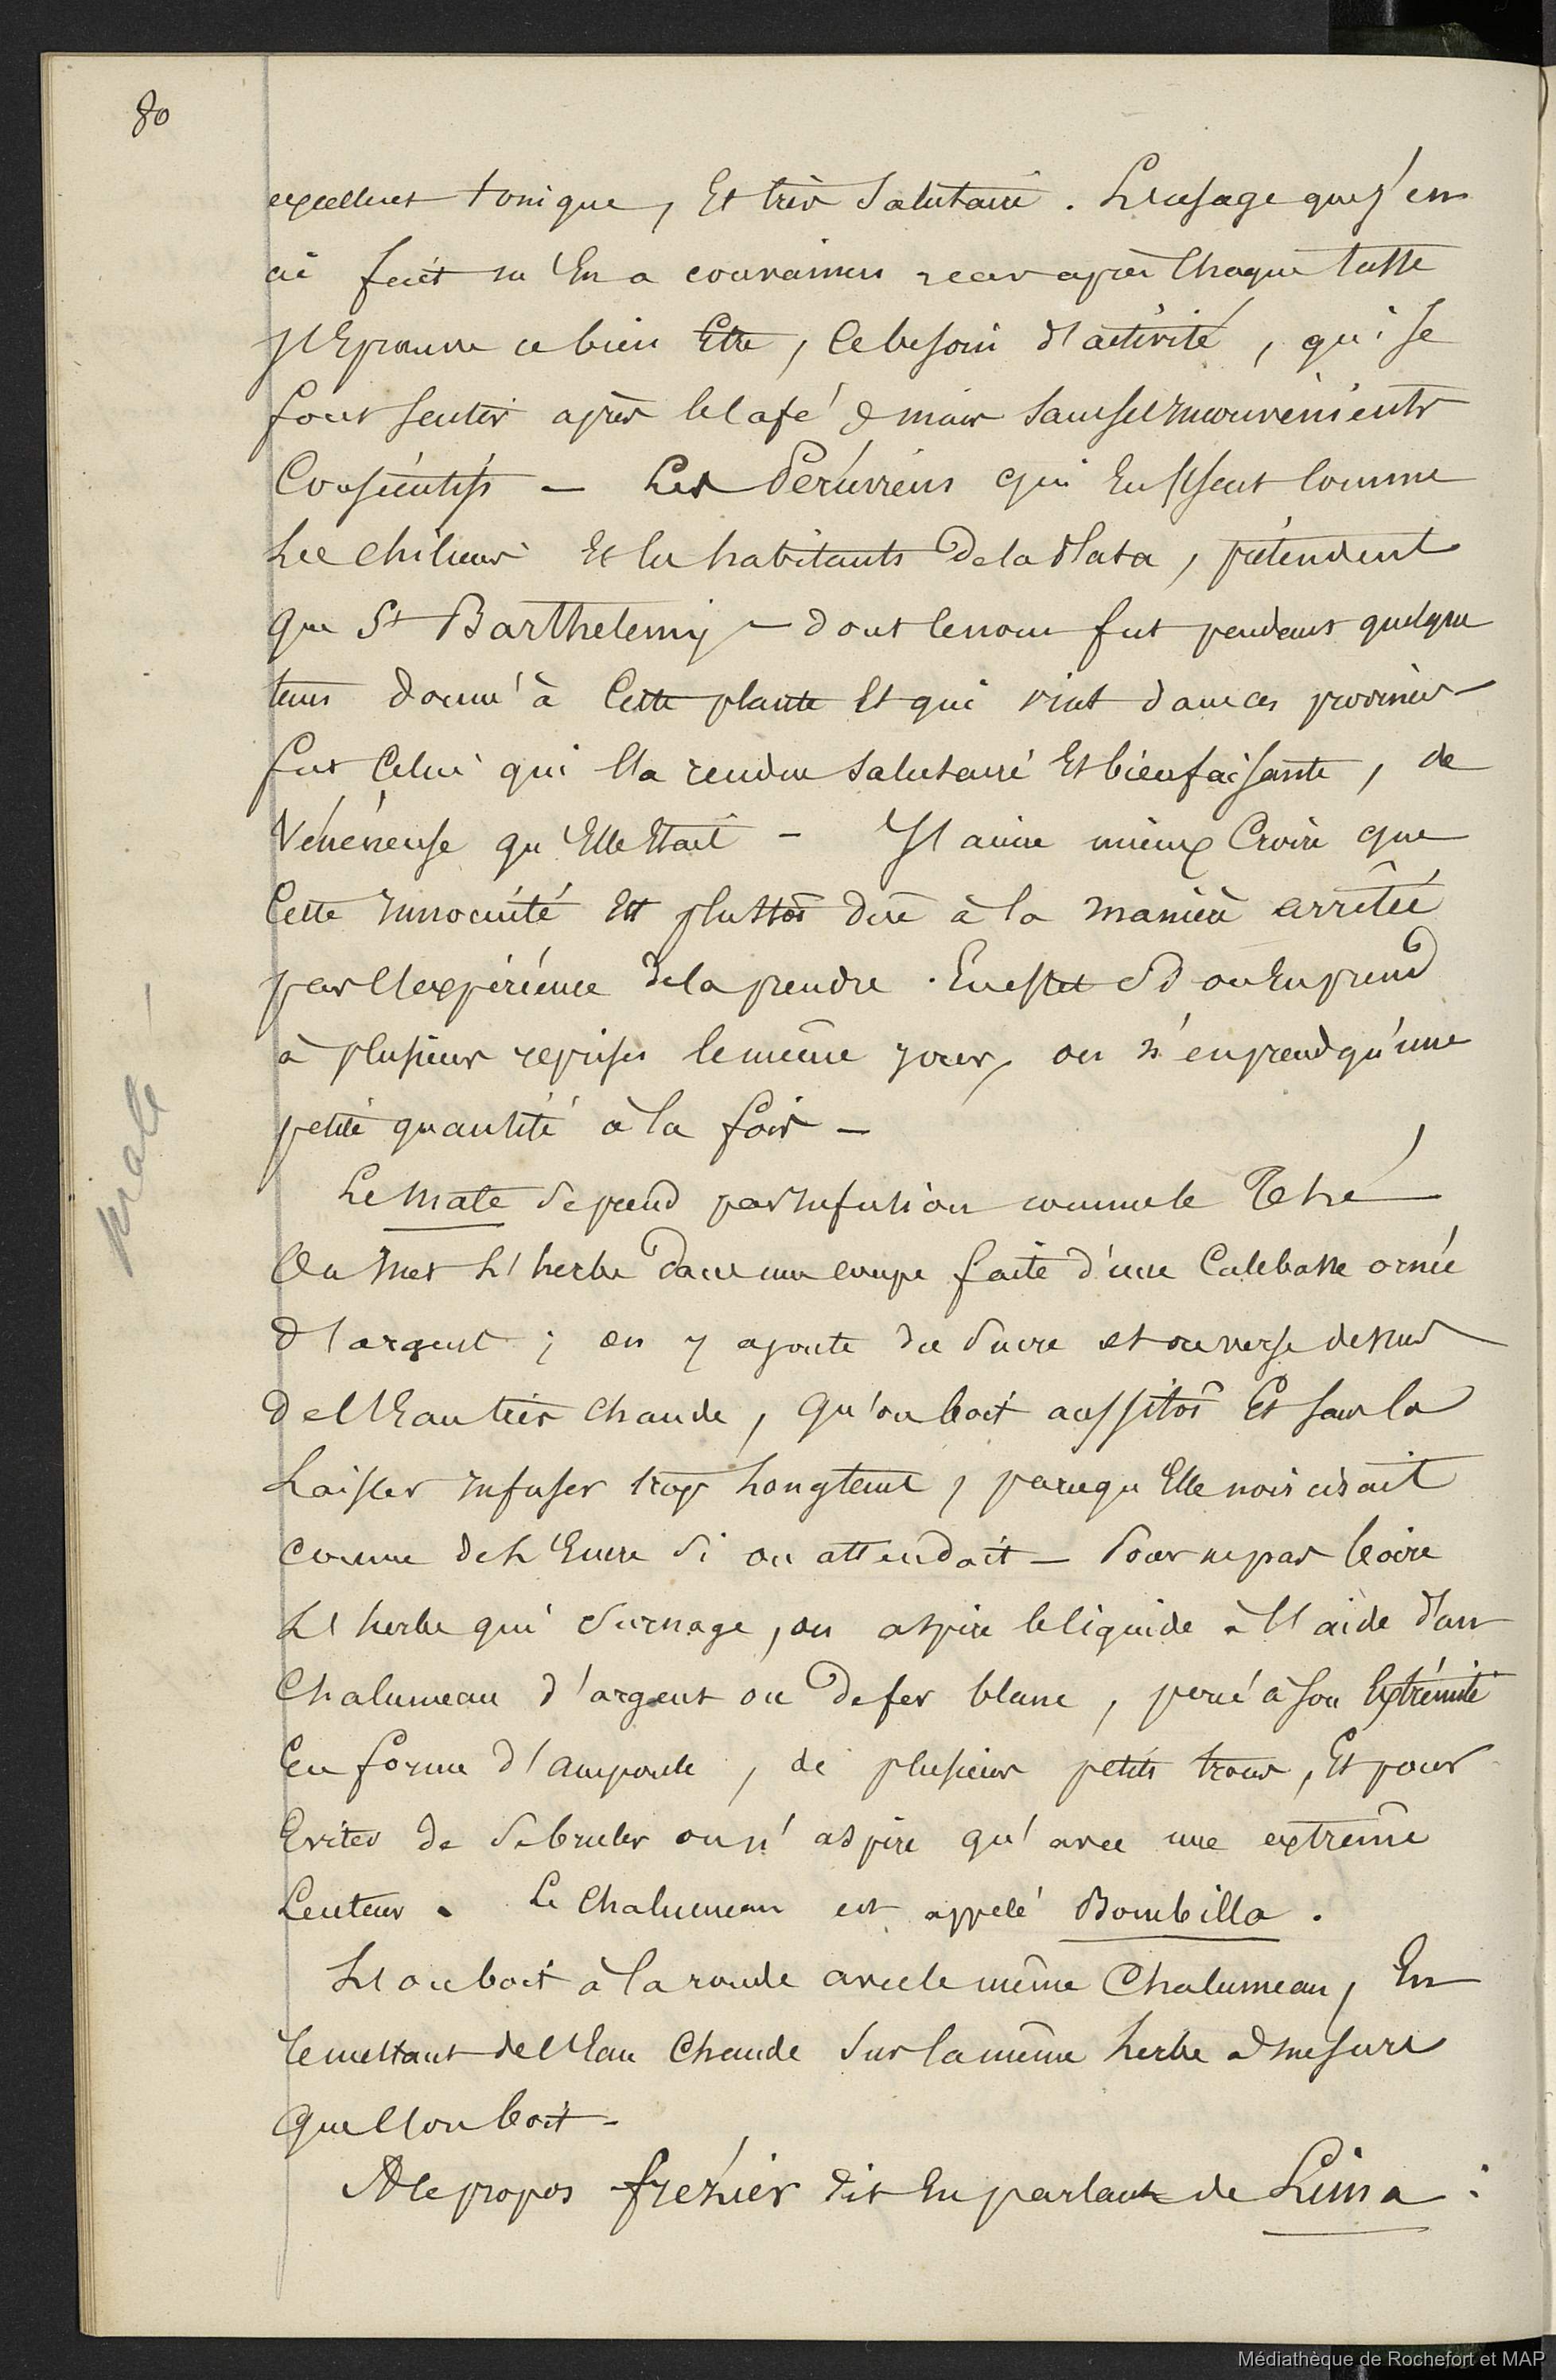 80
excellent tonique, Et très Salutaire. L'usage que j'en
ai fait m'En a convaincu ; car après Chaque tasse
J'Eprouve ce bien Etre, Ce besoin d'activité, qui se
font sentir après le Café & mais sans ses Inconvénients
Consécutifs — Les Péruviens qui En usent Comme
Les Chiliens Et les habitants de la Plata, prétendent
que St Barthelemy — dont le nom fut pendant quelque
tems donné à Cette plante Et qui vint dans ces provinces —
fut Celui qui l'a rendue salutaire Et bienfaisante, de
Vénéneuse qu'Elle Etait — J'aime mieux Croire que
Cette Innocuité Est plustôt düe à la manière arrêtée
par l'expérience de la prendre. En effet Si on En prend
à plusieurs reprises le même jour, on n'en prend qu'une
petite quantité à la fois —
Le Mate Se prend par Infusion comme le Thé
On Met L'herbe dans une coupe faite d'une Calebasse ornée
d'argent ; on y ajoute du Sucre et on verse dessus
de l'Eau très chaude, qu'on boit aussitôt Et sans la
Laisser Infuser trop Longtems, parcequ'Elle noircirait
comme de L'Encre Si on attendait — Pour ne pas boire
L'herbe qui Surnage, on aspire le liquide à l'aide d'un
Chalumeau d'argent ou de fer blanc, percé à son Extrémité
En forme d'ampoule, de plusieurs petits trous, Et pour
Eviter de Se bruler on n'aspire qu'avec une extrême
Lenteur. Le Chalumeau est appelé Bombilla.
L'on boit à la ronde avec le même Chalumeau, En
remettant de l'Eau Chaude Sur la même herbe à mesure
que l'on boit —
A Ce propos frézier dit En parlant de Lima :
Mate —
Médiathèque de Rochefort et MAP